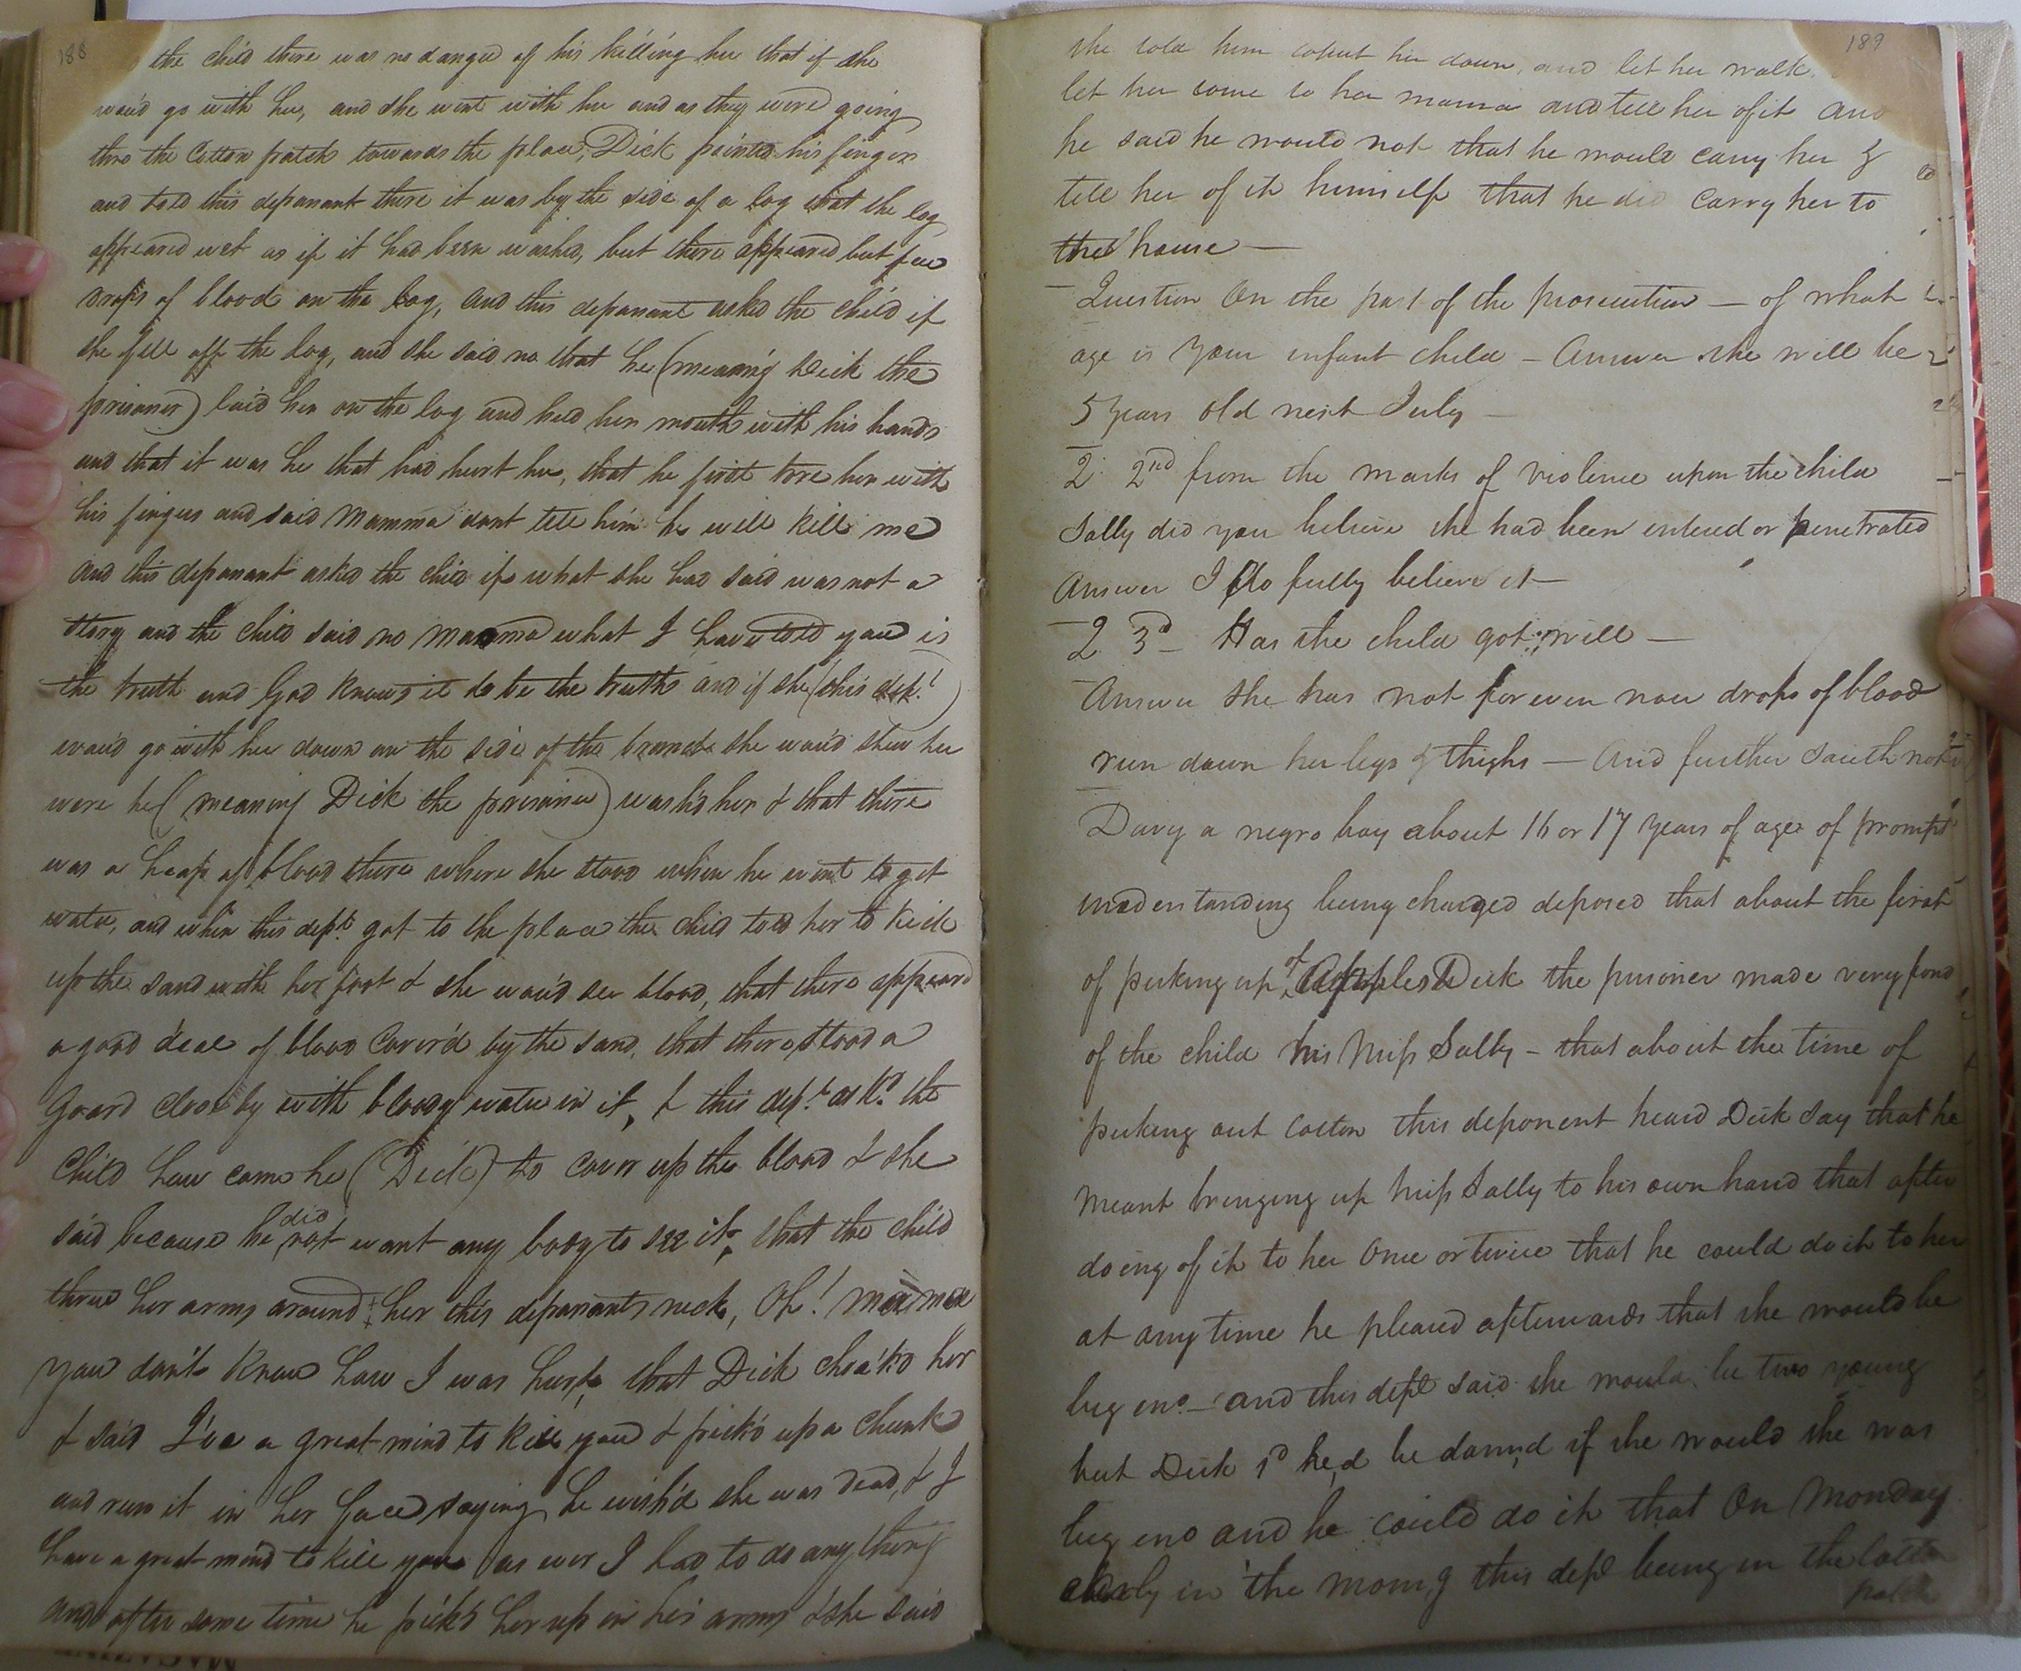 188
the child there was no danger of his killing her that if she
wou'd go with her, and she went with her and as they were going
thro the Cotton patch towards the place, Dick pointed his finger
and told this deponant there it was by the side of a log that the log
appeared wet as if it had been washed, but there appeared but few
drops of blood on the log, and this deponant asked the child if
she fell off the log, and she said no that he (meaning Dick the
prisoner) laid her on the log and held her mouth with his hands
and that it was he that had hurt her, that he first tore her with
his fingers and said Mamma dont tell him he will kill me
and this deponant asked the child if what she had said was not a
story and the child said no Mamma what I have told you is
the truth and God knows it to be the truth and if she (this dept.)
wou'd go with her down on the side of the branch she wou'd shew her
were he (meaning Dick the prisoner) wash'd her & that there
was a heap of blood there where she stood when he went to get
water, and when this dept. got to the place the child told her to kick
up the sand with her foot & she wou'd see blood, that there appeard
a good deal of blood Cover'd by the sand, that there stood a
Goard close by with bloody water in it, & this dept. ask'd the
Child how came he (Dick) to cover up the blood & she
said because he did not want any body to see it, that the child
threw her arms around her this deponants neck, Oh! mamma
you don't know how I was hurt, that Dick choak'd her
& said I've a great mind to kill you & pick'd up a chunk
and run it in her face saying he wish'd she was dead, & I
have a great mind to kill you as ever I had to do any thing
and after some time he pick'd her up in his arms & she said
189
she told him to put her down, and let her walk,
let her come to her mama and tell her of it and
he said he would not that he would carry her &
tell her of it himself that he did carry her to
the house —
Question On the part of the prosecution — of what
age is your infant child — Answer she will be
5 years old next July —
Q 2nd from the marks of violence upon the child
Sally did you believe she had been entered or penetrated
Answer I do fully believe it —
Q 3d — Has the child got well —
Answer she has not for even now drops of blood
run down her legs & thighs — And further saith not
Davy a negro boy about 16 or 17 years of age of prompt
understanding being charged deposed that about the first
of picking up of Apples Dick the prisoner made very fond
of the child his Miss Sally — that about the time of
picking out cotton this deponent heard Dick say that he
meant bringing up Miss Sally to his own hand that after
doing of it to her once or twice that he could do it to her
at any time he pleased afterwards that she would be
big eno — and this dept said she would be two young
but Dick sd he,d be damn,d if she would she was
big eno and he could do it that On Monday
early in the morn,g this dept being in the Cotton
patch